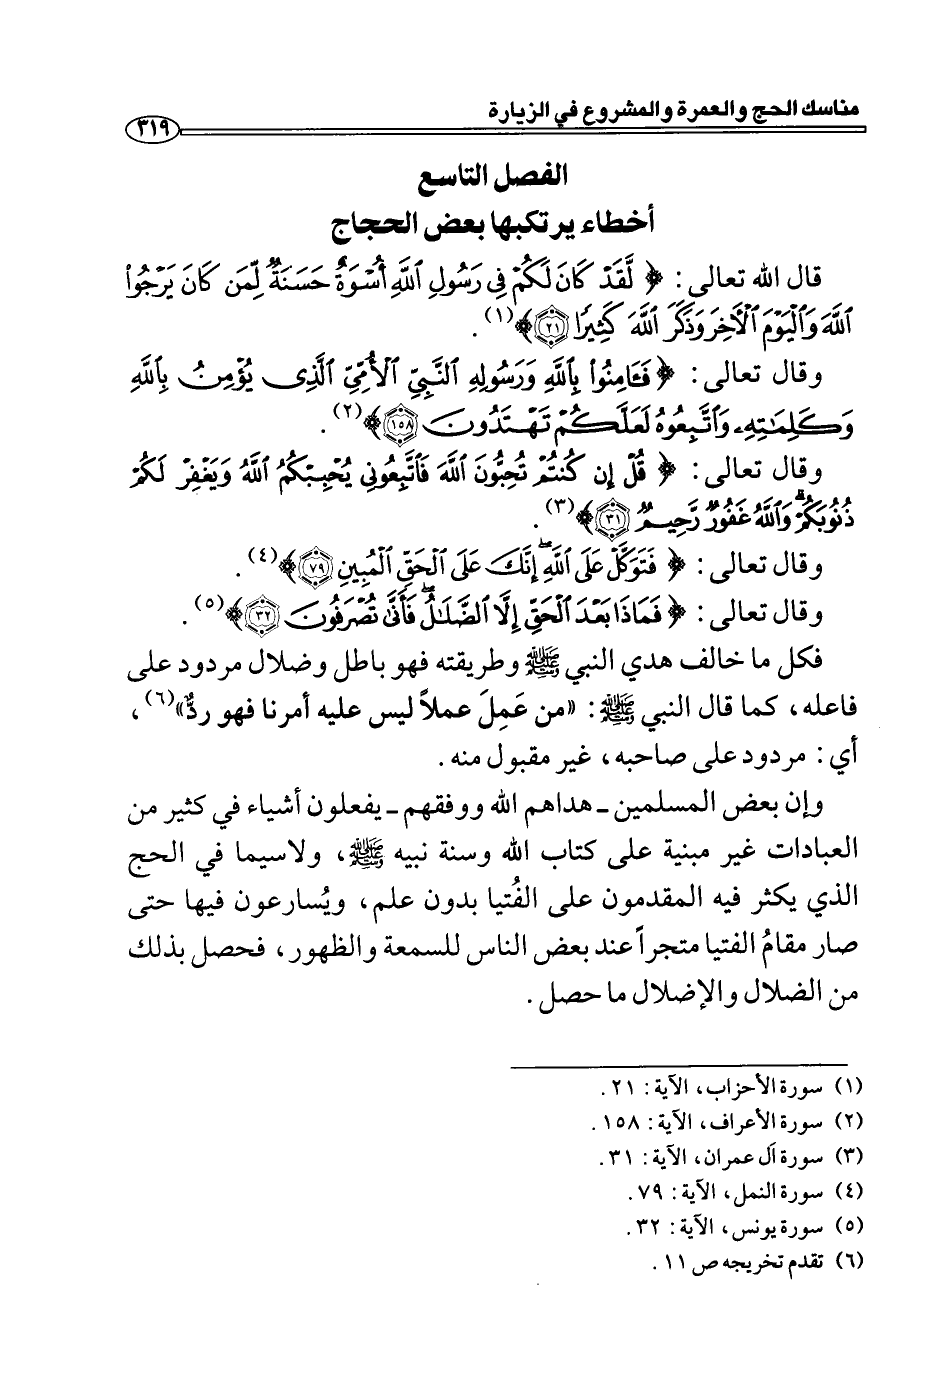 مناسك الحج والعمرة والمشروع في الزيارة
٣١٩
الفصل التاسع
أخطاء يرتكبها بعض الحجاج
قال الله تعالى: ﴿ لَّقَدْ كَانَ لَكُمْ فِي رَسُولِ ٱللَّهِ أُسْوَةٌ حَسَنَةٌ لِّمَن كَانَ يَرْجُوا۟
ٱللَّهَ وَٱلْيَوْمَ ٱلْأَخِرَ وَذَكَرَ ٱللَّهَ كَثِيرًا ٢١﴾(١).
وقال تعالى: ﴿ فَـَٔامِنُوا۟ بِٱللَّهِ وَرَسُولِهِ ٱلنَّبِيِّ ٱلْأُمِّيِّ ٱلَّذِى يُؤْمِنُ بِٱللَّهِ
وَكَلِمَـٰتِهِۦ وَٱتَّبِعُوهُ لَعَلَّكُمْ تَهْتَدُونَ ١٥٨﴾(٢).
وقال تعالى: ﴿ قُلْ إِن كُنتُمْ تُحِبُّونَ ٱللَّهَ فَٱتَّبِعُونِي يُحْبِبْكُمُ ٱللَّهُ وَيَغْفِرْ لَكُمْ
ذُنُوبَكُمْ ۗ وَٱللَّهُ غَفُورٌ رَّحِيمٌ ٣١﴾(٣).
وقال تعالى: ﴿ فَتَوَكَّلْ عَلَى ٱللَّهِ ۖ إِنَّكَ عَلَى ٱلْحَقِّ ٱلْمُبِينِ ٧٩﴾(٤).
وقال تعالى: ﴿ فَمَاذَا بَعْدَ ٱلْحَقِّ إِلَّا ٱلضَّلَـٰلُ ۖ فَأَنَّىٰ تُصْرَفُونَ ٣٢﴾(٥).
فكل ما خالف هدي النبي ﷺ وطريقته فهو باطل وضلال مردود على
فاعله، كما قال النبي ﷺ: «من عَمِلَ عملاً ليس عليه أمرنا فهو ردٌّ»(٦)،
أي: مردود على صاحبه، غير مقبول منه.
وإن بعض المسلمين ـ هداهم الله ووفقهم ـ يفعلون أشياء في كثير من
العبادات غير مبنية على كتاب الله وسنة نبيه ﷺ، ولاسيما في الحج
الذي يكثر فيه المقدمون على الفُتيا بدون علم، ويُسارعون فيها حتى
صار مقامُ الفتيا متجراً عند بعض الناس للسمعة والظهور، فحصل بذلك
من الضلال والإضلال ما حصل.
(١) سورة الأحزاب، الآية: ٢١.
(٢) سورة الأعراف، الآية: ١٥٨.
(٣) سورة آل عمران، الآية: ٣١.
(٤) سورة النمل، الآية: ٧٩.
(٥) سورة يونس، الآية: ٣٢.
(٦) تقدم تخريجه ص ١١.